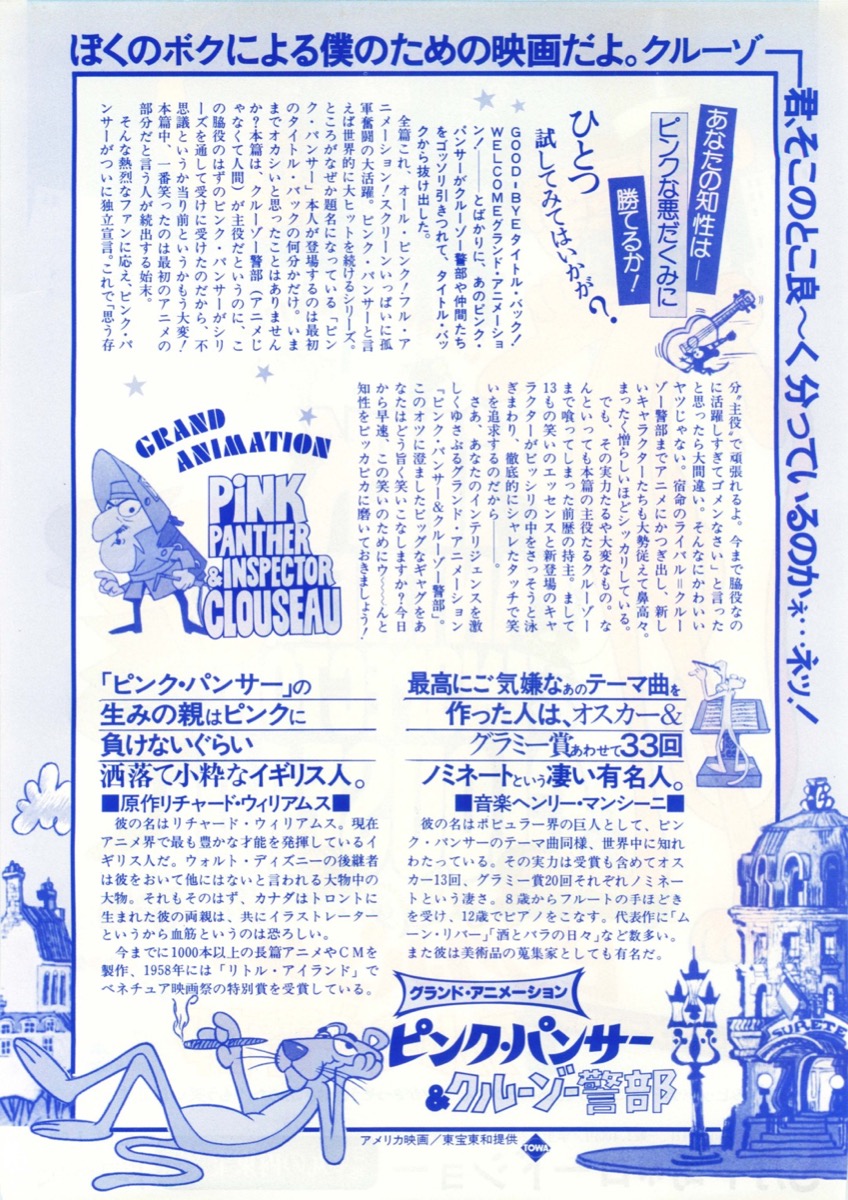 ぼくのボクによる僕のための映画だよ。クルーゾー
君、そこのとこ良〜く分っているのかネ…ネッ!
あなたの知性は―
ピンクな悪だくみに
勝てるか!
ひとつ
試してみてはいかが?
GOOD-BYEタイトル・バック!
WELCOMEグランド・アニメーショ
ン!――とばかりに、あのピンク・
パンサーがクルーゾー警部や仲間たち
をゴッソリ引きつれて、タイトル・バッ
クから抜け出した。
全篇これ、オール・ピンク!フル・ア
ニメーション!スクリーンいっぱいに孤
軍奮闘の大活躍。ピンク・パンサーと言
えば世界的に大ヒットを続けるシリーズ。
ところがなぜか題名になっている「ピン
ク・パンサー」本人が登場するのは最初
のタイトル・バックの何分かだけ。いま
までオカシいと思ったことはありません
か?本篇は、クルーゾー警部(アニメじ
ゃなくて人間)が主役だというのに、こ
の脇役のはずのピンク・パンサーがシリ
ーズを通して受けに受けたのだから、不
思議というか当り前というかもう大変!
本篇中、一番笑ったのは最初のアニメの
部分だと言う人が続出する始末。
そんな熱烈なファンに応え、ピンク・パ
ンサーがついに独立宣言。これで「思う存
分“主役”で頑張れるよ。今まで脇役なの
に活躍しすぎてゴメンなさい」と言った
と思ったら大間違い。そんなにかわいい
ヤツじゃない。宿命のライバル=クルー
ゾー警部までアニメにかつぎ出し、新し
いキャラクターたちも大勢従えて鼻高々。
まったく憎らしいほどシッカリしている。
でも、その実力たるや大変なもの。な
んといっても本篇の主役たるクルーゾー
まで喰ってしまった前歴の持主。まして
13もの笑いのエッセンスと新登場のキャ
ラクターがビッシリの中をさっそうと泳
ぎまわり、徹底的にシャレたタッチで笑
いを追求するのだから――。
さあ、あなたのインテリジェンスを激
しくゆさぶるグランド・アニメーション
「ピンク・パンサー&クルーゾー警部」。
このオツに澄ましたビッグなギャグをあ
なたはどう旨く笑いこなしますか?今日
から早速、この笑いのためにウ〜〜んと
知性をピッカピカに磨いておきましょう!
GRAND
ANIMATION
PiNK
PANTHER
&INSPECTOR
CLOUSEAU
「ピンク・パンサー」の
生みの親はピンクに
負けないぐらい
洒落て小粋なイギリス人。
■原作リチャード・ウィリアムス■
彼の名はリチャード・ウィリアムス。現在
アニメ界で最も豊かな才能を発揮しているイ
ギリス人だ。ウォルト・ディズニーの後継者
は彼をおいて他にはないと言われる大物中の
大物。それもそのはず、カナダはトロントに
生まれた彼の両親は、共にイラストレーター
というから血筋というのは恐ろしい。
今までに1000本以上の長篇アニメやCMを
製作、1958年には「リトル・アイランド」で
ベネチュア映画祭の特別賞を受賞している。
最高にご気嫌なあのテーマ曲を
作った人は、オスカー&
グラミー賞あわせて33回
ノミネートという凄い有名人。
■音楽ヘンリー・マンシーニ■
彼の名はポピュラー界の巨人として、ピン
ク・パンサーのテーマ曲同様、世界中に知れ
わたっている。その実力は受賞も含めてオス
カー13回、グラミー賞20回それぞれノミネー
トという凄さ。8歳からフルートの手ほどき
を受け、12歳でピアノをこなす。代表作に「ム
ーン・リバー」「酒とバラの日々」など数多い。
また彼は美術品の蒐集家としても有名だ。
グランド・アニメーション
ピンク・パンサー
&クルーゾー警部
SURETE
アメリカ映画/東宝東和提供
TOWA